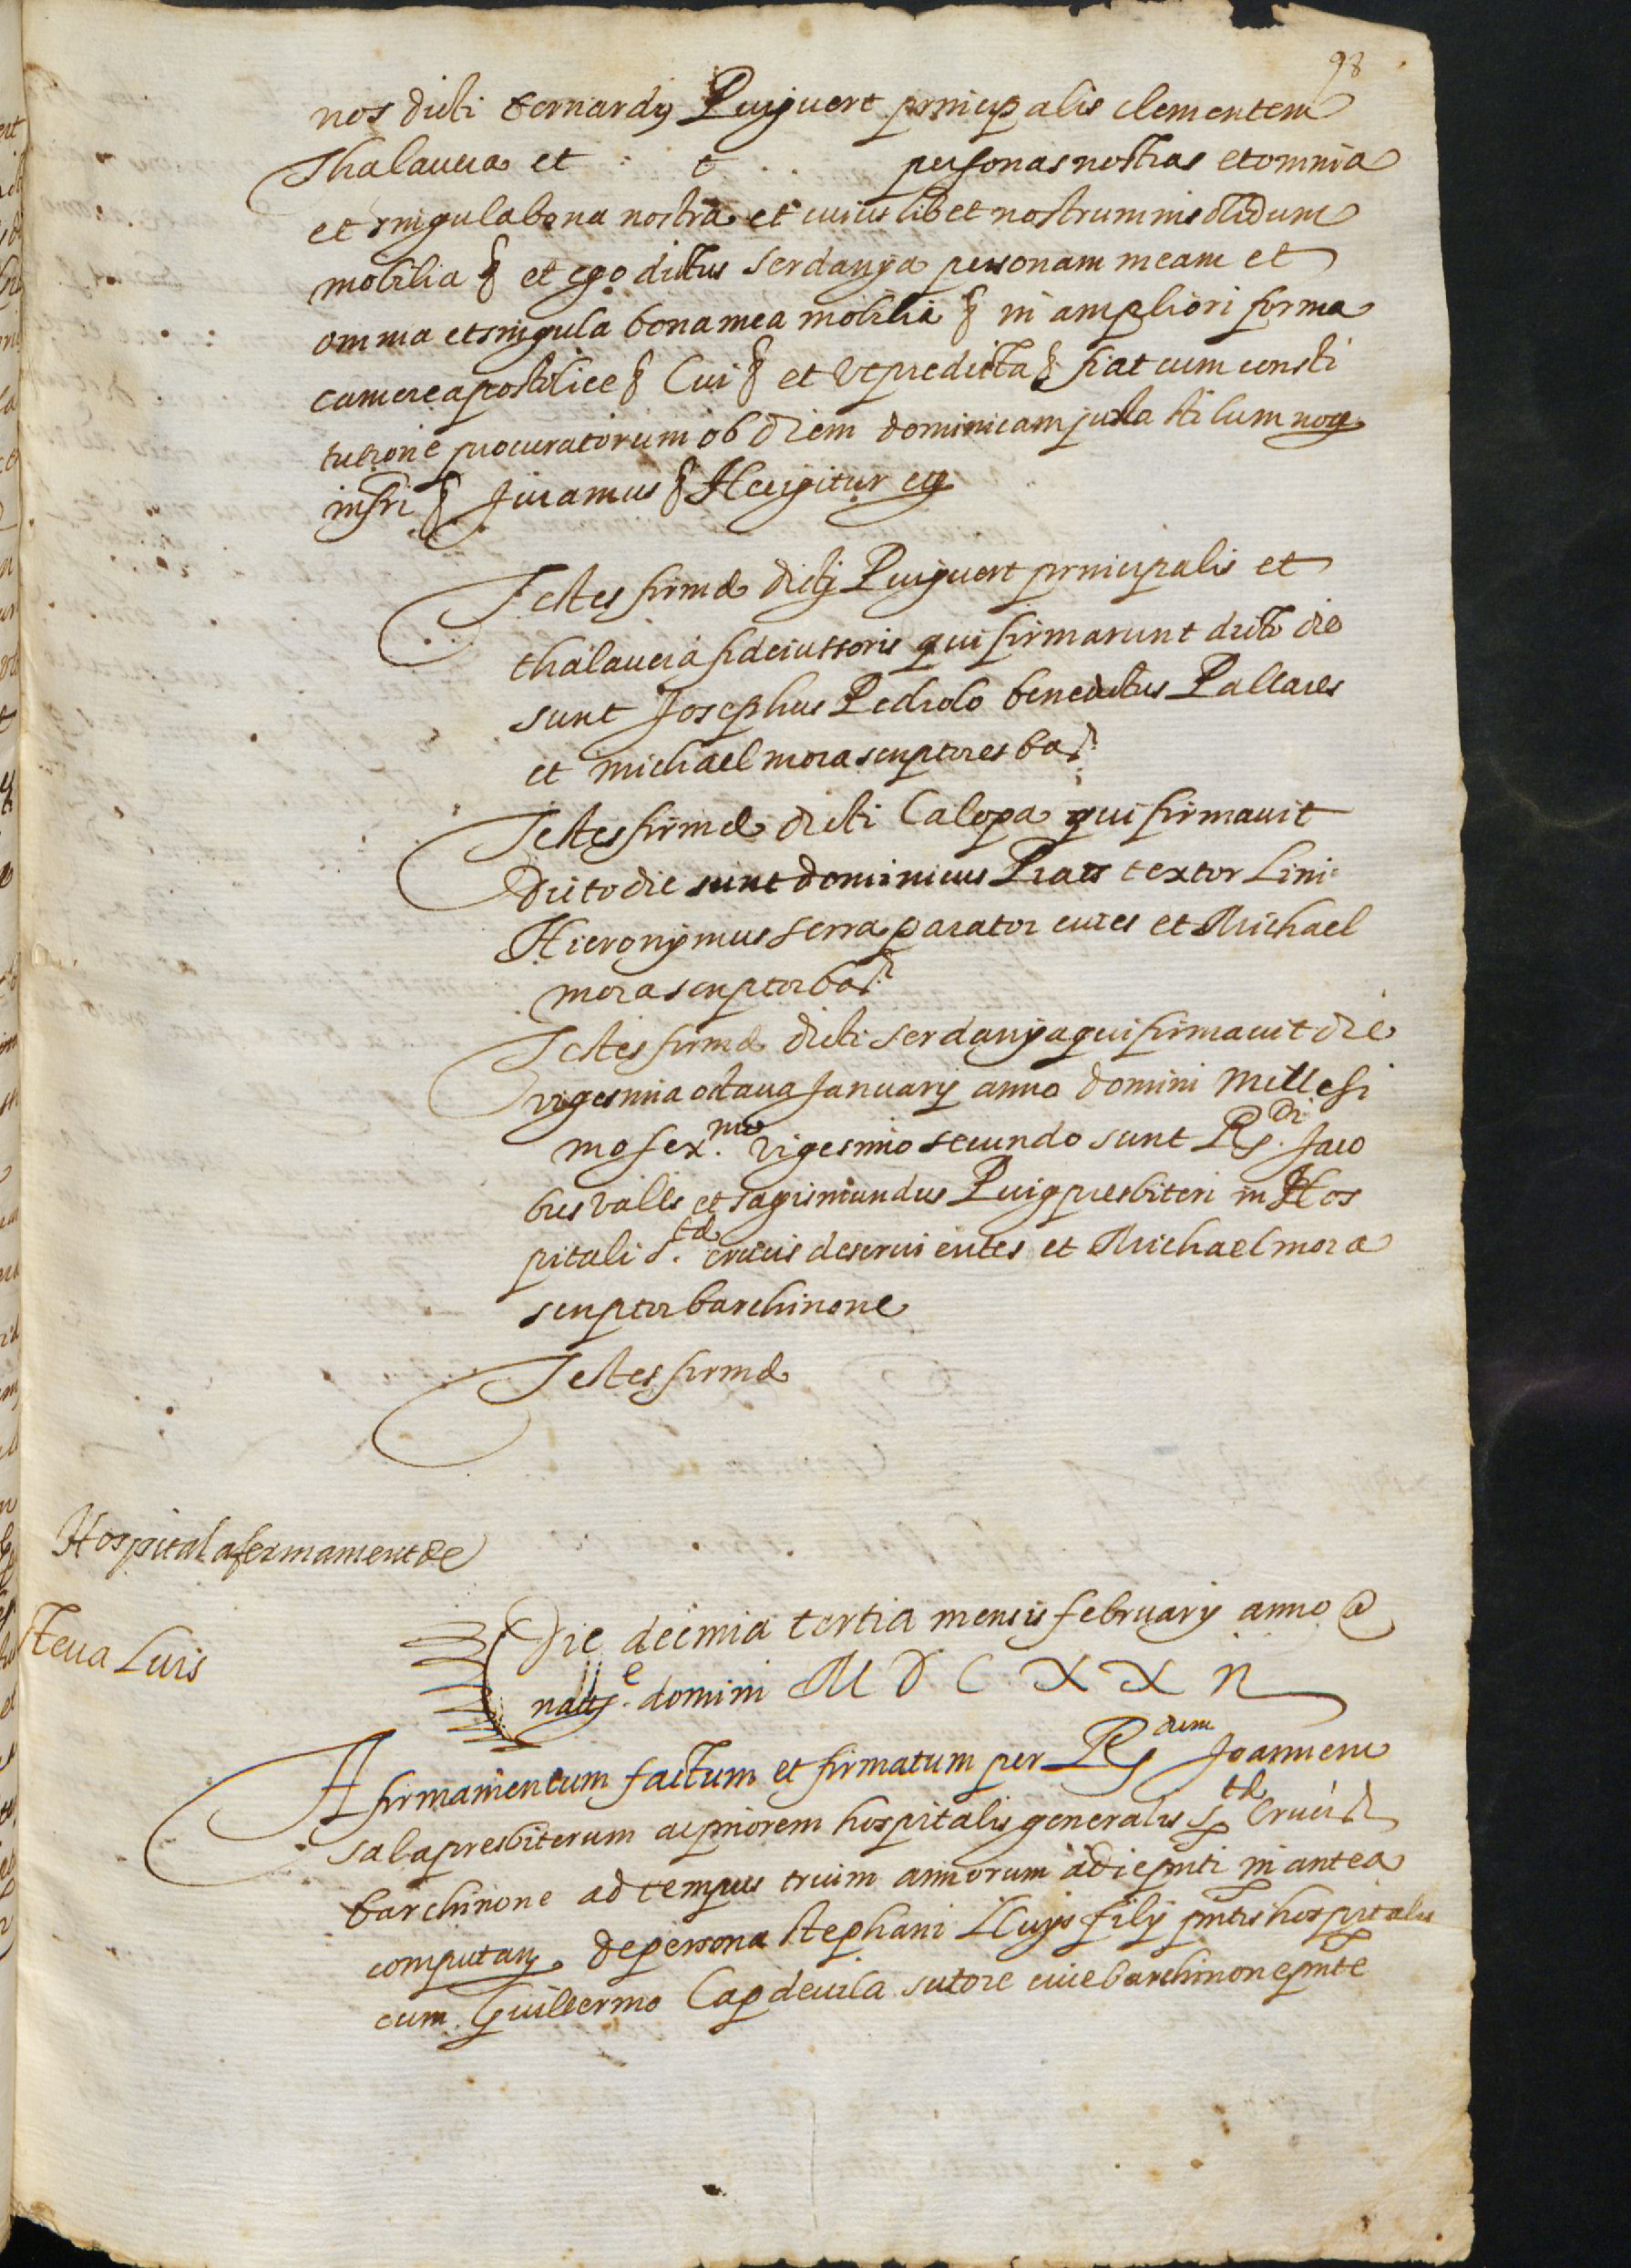 98
nos dicti Bernardus Puiguert principalis clementem
Thalauera et . . t . . personas nostras et omnia
et singula bona nostra et cuiuslibet nostrum insolidum
mobilia & et ego dictus serdanya personam meam et
omnia et singula bona mea mobilia & in ampliori forma
camere apostolice & Cui & et vt predicta & fiat cum consti
tucione procuratorum ob diem dominicam juxta stilum not
infri & Juramus & Hec igitur eg
Testes firmæ dictj Puiguert principalis et
thalauera fideiussoris qui firmarunt dicto die
sunt Josephus Pedrolo benedictus Pallares
et michael mora scriptores bar
Testes firmæ dicti Calopa qui firmauit
Dicto die sunt dominicus Prats textor Lini
Hieronymus serra parator ciues et Michael
mora scriptor bar
Testes firmæ dicti serdanya qui firmauit die
vigesima octaua January anno domini Millesi
mo sex.mo vigesimo secundo sunt R.di Jaco
bus valls et sagismundus Puig presbiteri in Hos
pitali S.tæ crucis deseruientes et Michael mora
scriptor barchinone
Testes firmæ
Hospital afermament de
steua Luis
Die decima tertia mensis february anno a
natte domini M D C X X ii
Afirmamentum factum et firmatum per R.dum Joannem
sala presbiterum ac priorem hospitalis generalis S.tæ Crucis
barchinone ad tempus trium annorum a die pnti in antea
computan. de persona stephani Lluys filij pntis hospitalis
cum Guillermo Capdeuila sutore ciue barchinone pnte